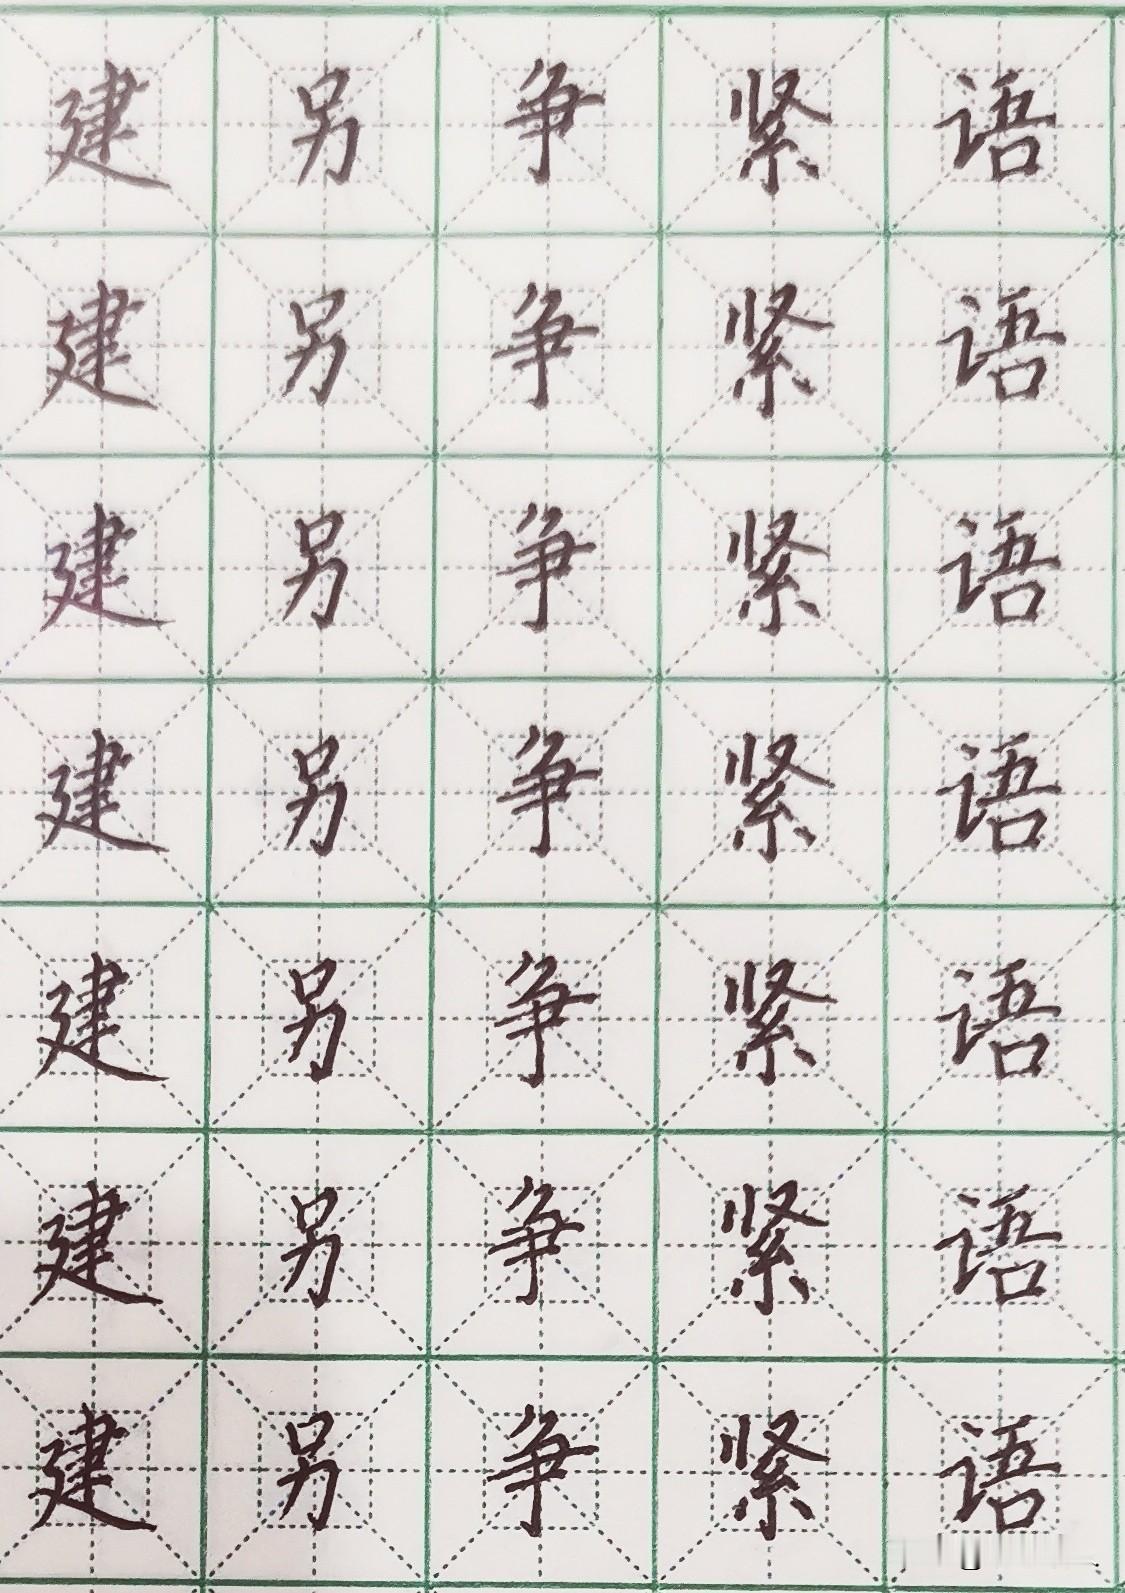 建另争紧语
建另争紧语
建另争紧语
建另争紧语
建另争紧语
建另争紧语
建另争紧语